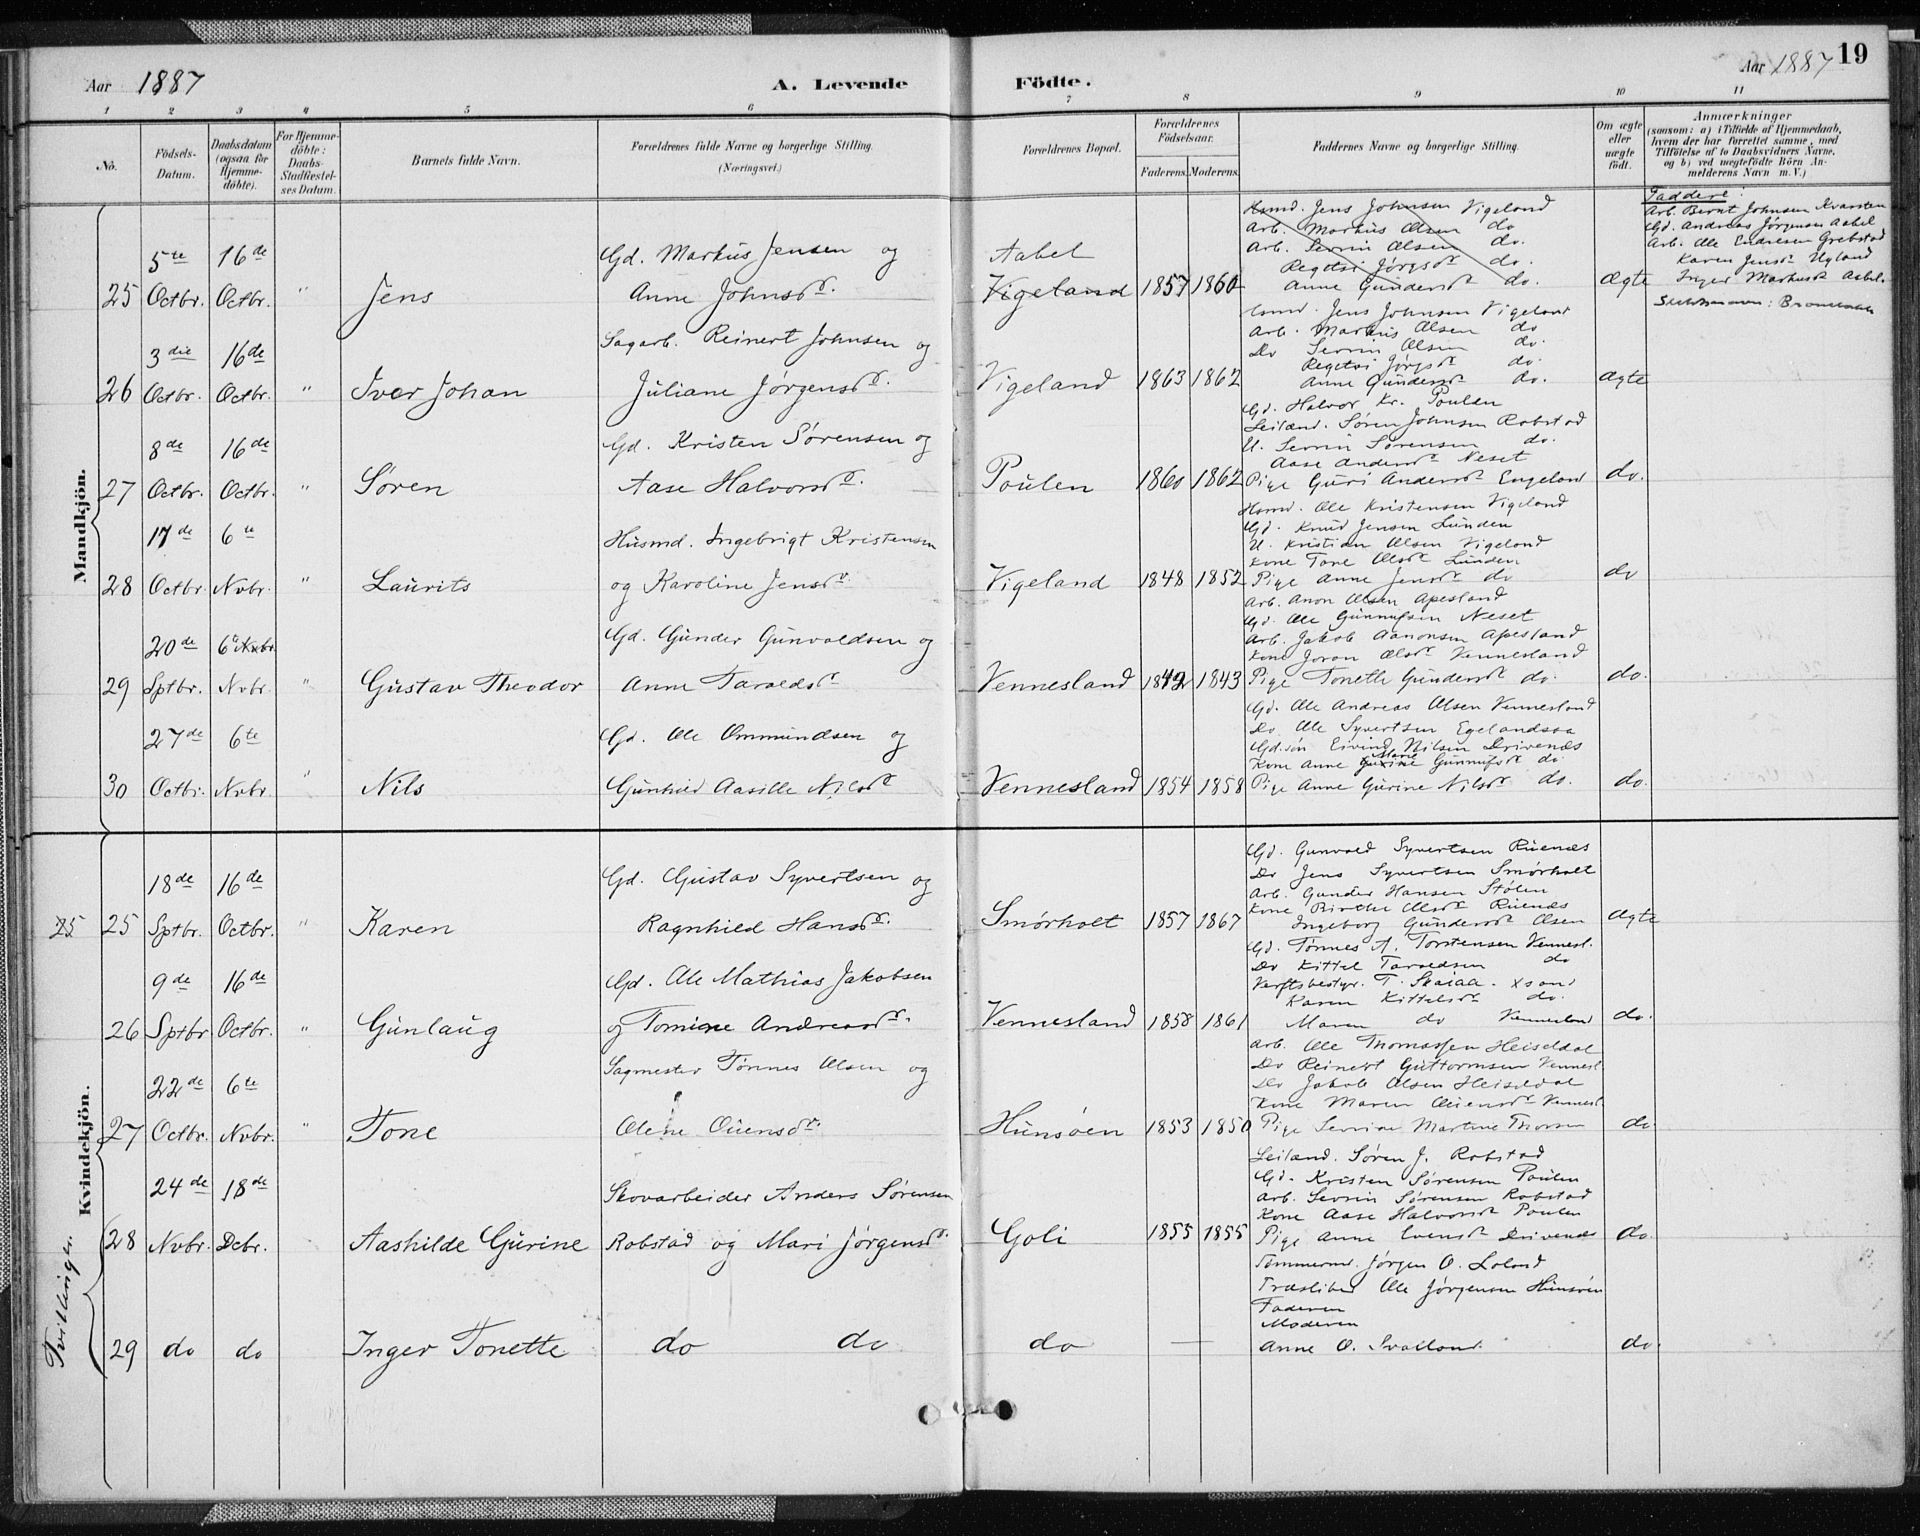 Aar 1887
A. Levende Födte.
Aar 1887 19
1 2 3 4 5 6 7 8 9 10 11
No.
Födsels-Datum.
Daabsdatum (ogsaa for Hjemmedöbte).
For Hjemmedöbte: Daabs-Stadfæstelses Datum.
Barnets fulde Navn.
Forældrenes fulde Navne og borgerlige Stilling. (Næringsvei.)
Forældrenes Bopæl.
Forældrenes Födselsaar.
Faderens. Moderens.
Faddernes Navne og borgerlige Stilling.
Om ægte eller uægte födt.
Anmærkninger
(saasom: a) i Tilfælde af Hjemmedaab, hvem der har forrettet samme, med Tilföielse af to Daabsvidners Navne, og b) ved uegtefödte Börn Anmelderens Navn m. V.)
Mandkjön.
25 5te Octbr. 16de Octbr. " Jens
Gd. Markus Jensen og
Anne Johnsdr.
Aabel
Vigeland 1857 1860
Husmd. Jens Johnsen Vigeland
Arb. Markus Olsen do
Arb. Sevrin Olsen do.
Regitsi Jørgsdr do.
Anne Gundersdr do.
ægte
Faddere:
Arb. Bernt Johnsen Kvarsten
Gd. Andreas Jørgensen Aabel
Arb. Ole Endresen Grebstad
Karen Jensdr Ugland
Inger Markusdr Aabel.
26 3die Octbr. 16de Octbr. " Iver Johan
Sagarb. Reinert Johnsen og
Juliane Jørgensdr.
Vigeland 1863 1862
Husmd. Jens Johnsen Vigeland
Arb. Markus Olsen do
Do Sevrin Olsen do.
Regitsi Jørgsdr do.
Anne Gundersdr do.
ægte
27 8de Octbr. 16de Octbr. " Søren
Gd. Kristen Sørensen og
Aase Halvorsdr.
Poulen 1860 1862
Gd. Halvor Kr. Poulen
Leilænd. Søren Johnsen Robstad
U. Sevrin Sørensen do.
Aase Andersdr Neset
Pige Guri Andersdr Engeland
do.
28 17de Octbr. 6te Nvbr. " Laurits
Husmd. Ingebrigt Kristensen
og Karoline Jensdr.
Vigeland 1848 1852
Husmd. Ole Kristensen Vigeland
Gd. Knud Jensen Lunden
U. Kristian Olsen Vigeland
Kone Tone Olsdr Lunden
Pige Anne Jensdr do
do
29 20de Sptbr. 6te Nvbr. Nvbr. " Gustav Theodor
Gd. Gunder Gunvaldsen og
Anne Taraldsdr
Vennesland 1842 1843
Arb. Anon Olsen Apesland
Gd. Ole Gunnufsen Neset
Arb. Jakob Aanonsen Apesland
Kone Joran Olsdr Vennesland
Pige Tonette Gundersdr do.
do.
30 27de Octbr. 6te Nvbr. " Nils
Gd. Ole Ommundsen og
Gunhild Aasille Nilsdr
Vennesland 1854 1858
Gd. Ole Andreas Olsen Vennesland
Do. Ole Syvertsen Egelandssaa
Gd.søn Eivind Nilsen Drivenæs
Kone Anne Marie Gunnufsdr do
Pige Anne Gurine Nilsdr do.
do.
Kvindekjön.
25 25 18de Sptbr. 16de Octbr. " Karen
Gd. Gustav Syvertsen og
Ragnhild Hansdr.
Smørholt 1857 1867
Gd. Gunvald Syvertsen Ruenæs
Do Jens Syvertsen Smørholt
Arb. Gunder Hansen Stølen
Kone Birthe Olsdr Ruenæs
Ingeborg Gundersdr Olsen
ægte
26 9de Sptbr 16de Octbr. " Gunlaug
Gd. Ole Mathias Jakobsen
og Tomine Andreasdr.
Vennesland 1858 1861
Gd. Tønnes A. Torstensen Vennesl.
Do Kittel Taraldsen do
Verftsbestyr. T. Skaiaa. Xsand
Karen Kittelsdr do.
Maren do Vennesland
do.
27 22de Octbr. 6te Nvbr. " Tone
Sagmester Tønnes Olsen og
Olene Ouensdr.
Hunsøen 1853 1850
Arb. Ole Thomassen Heiseldal
Do Reinert Guttormsen Vennesl.
Do Jakob Olsen Heiseldal
Kone Maren Ouensdr Vennesl.
Pige Sevrine Martine Thorsen
do
Tvillinger.
28 24de Nvbr. 18de Dcbr. Aashilde Gurine
Skovarbeider Anders Sørensen
Robstad og Mari Jørgensdr.
Goli 1855 1855
Leiland. Søren J. Robstad
Gd. Kristen Sørensen Poulen
Arb. Sevrin Sørensen Robstad
Kone Aase Halvorsdr Poulen
Pige Anne Evensdr Drivenæs
do.
29 do do Inger Tonette
do do
do —
Tømmermd. Jørgen O. Loland
Træsliber Ole Jørgensen Hunsøen
Faderen
Moderen
Anne O. Svalland.
do.